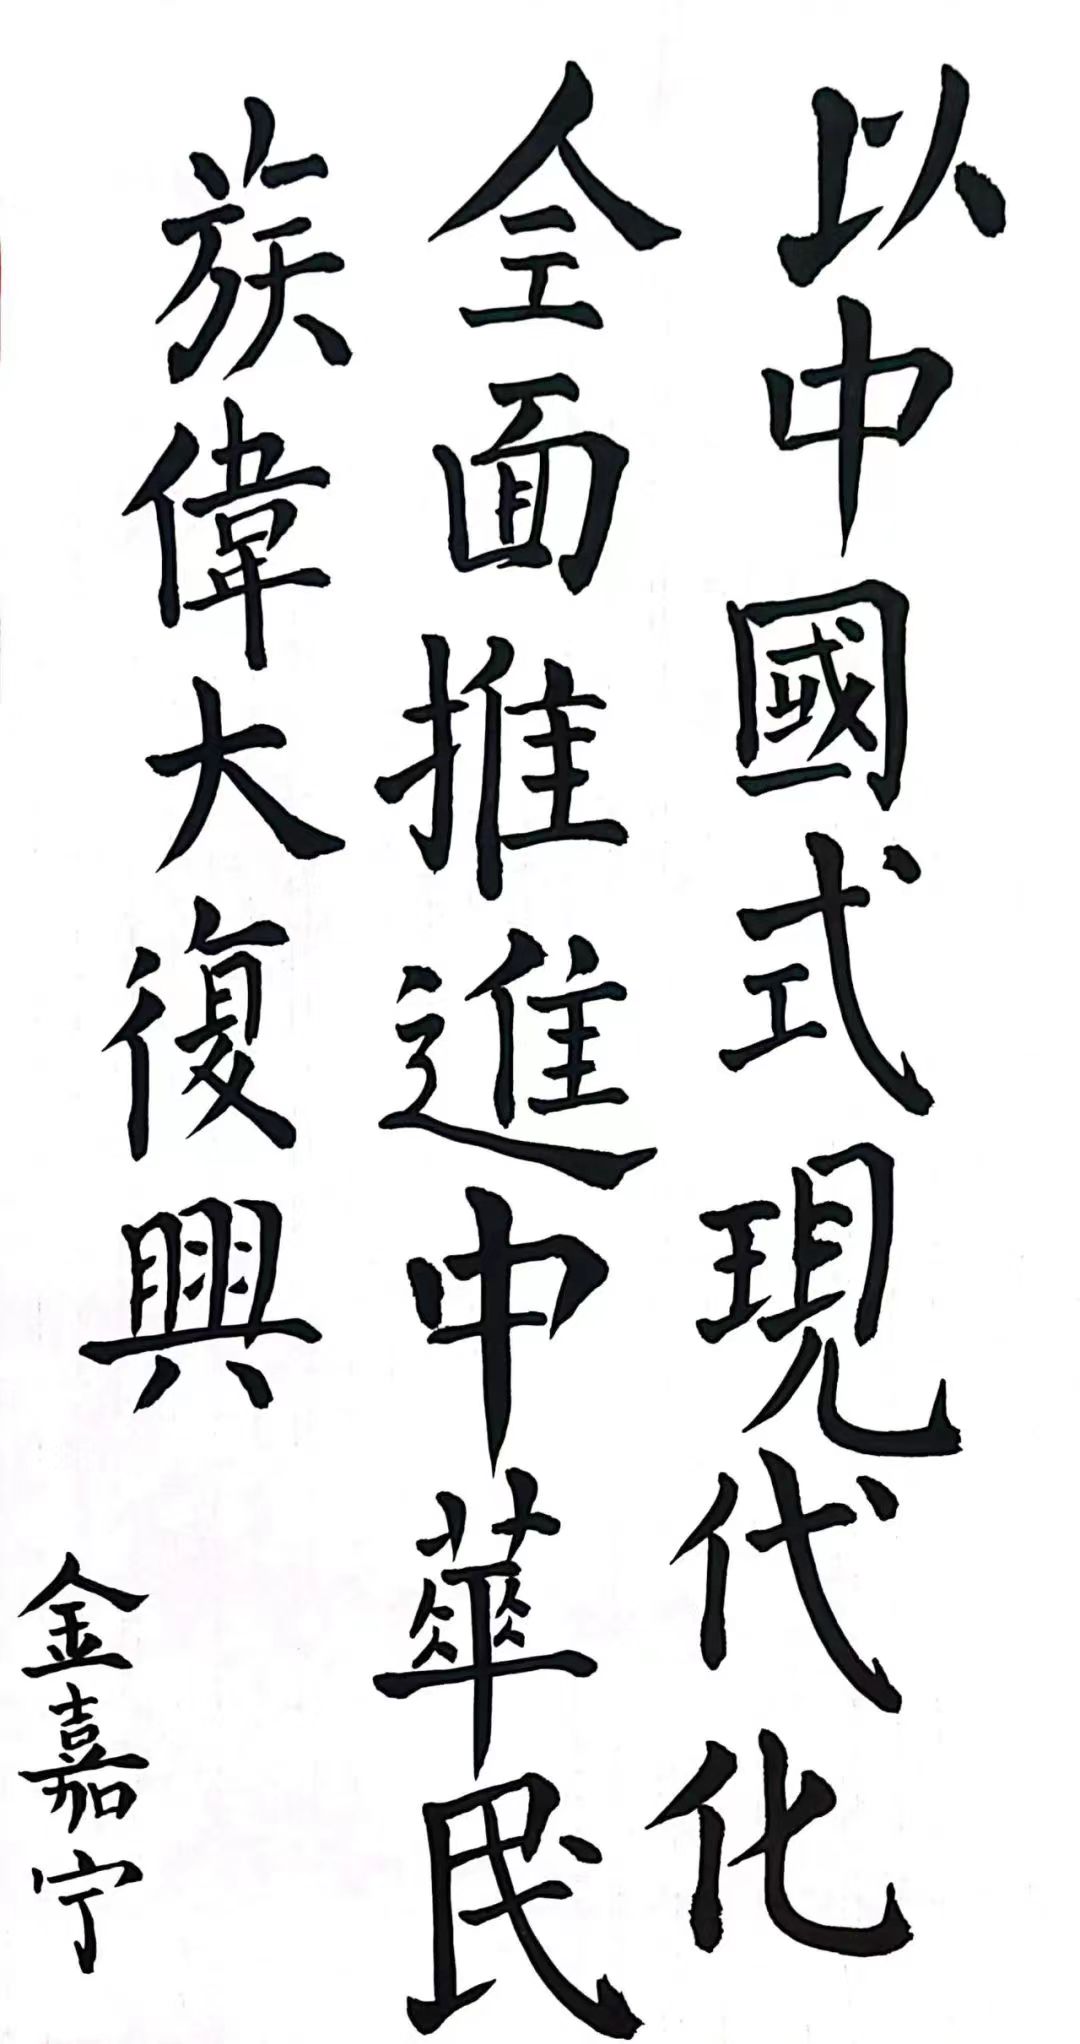 以中國式現代化
全面推進中華民
族偉大復興
金嘉宁